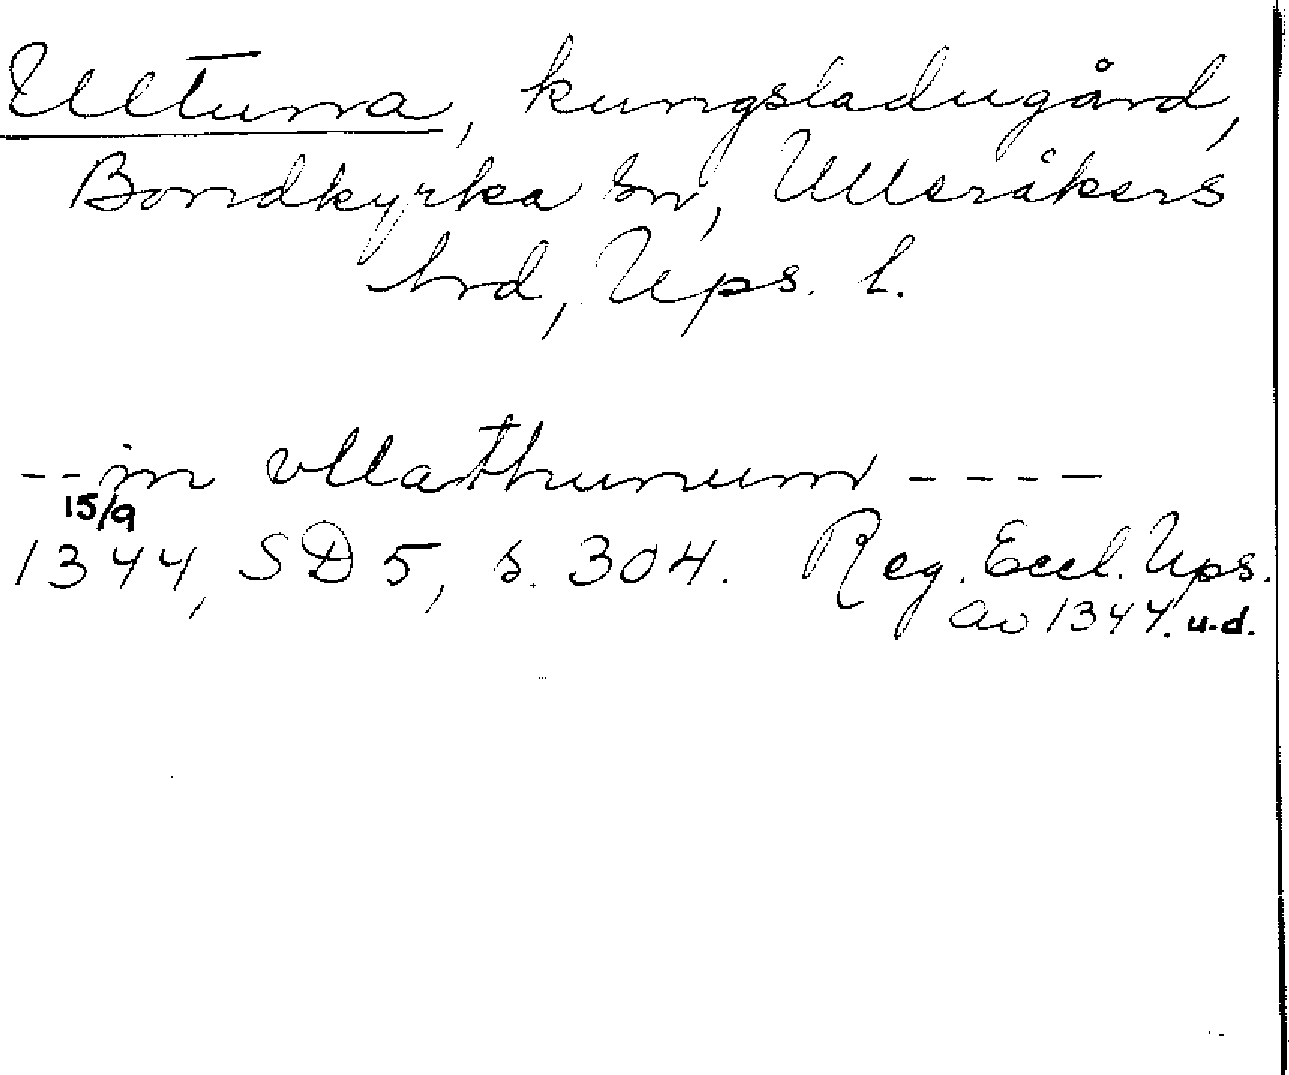 Ultuna, kungsladugård,
Bondkyrka sn, Ulleråkers
hrd, Ups. l.
--in vllathunum ----
15/9
1344, SD 5, s. 304. Reg. Eccl. Ups.
av 1344. u.d.